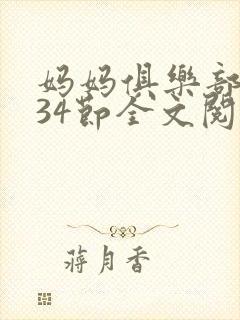 妈妈俱樂部
34節全文閱
蔣月香